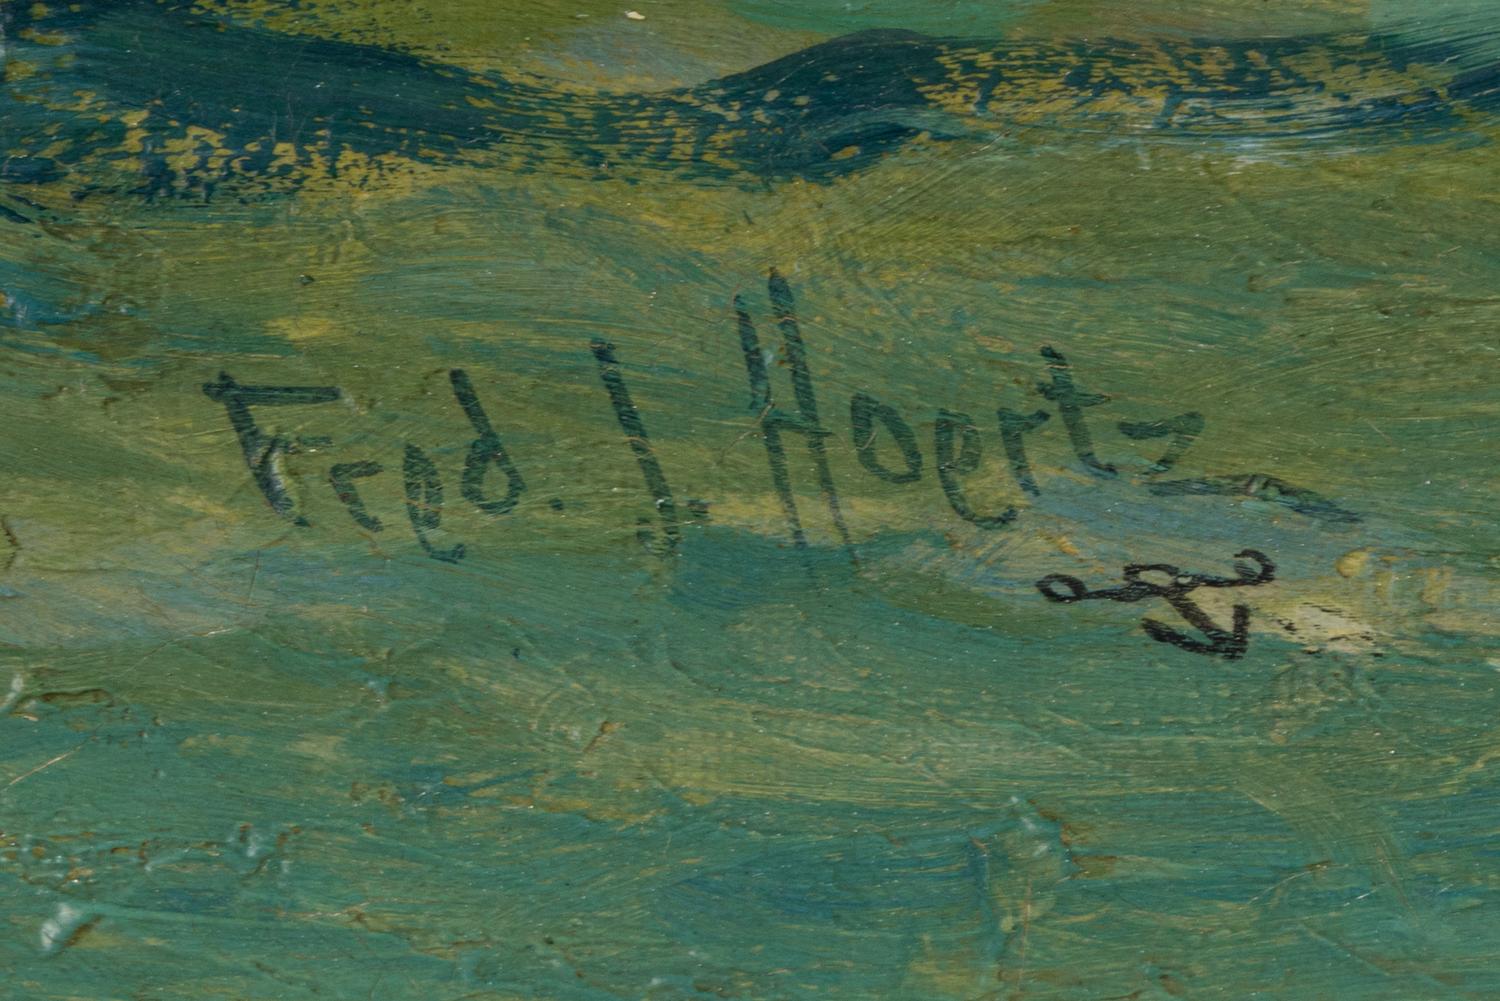 Fred. J. Hoertz